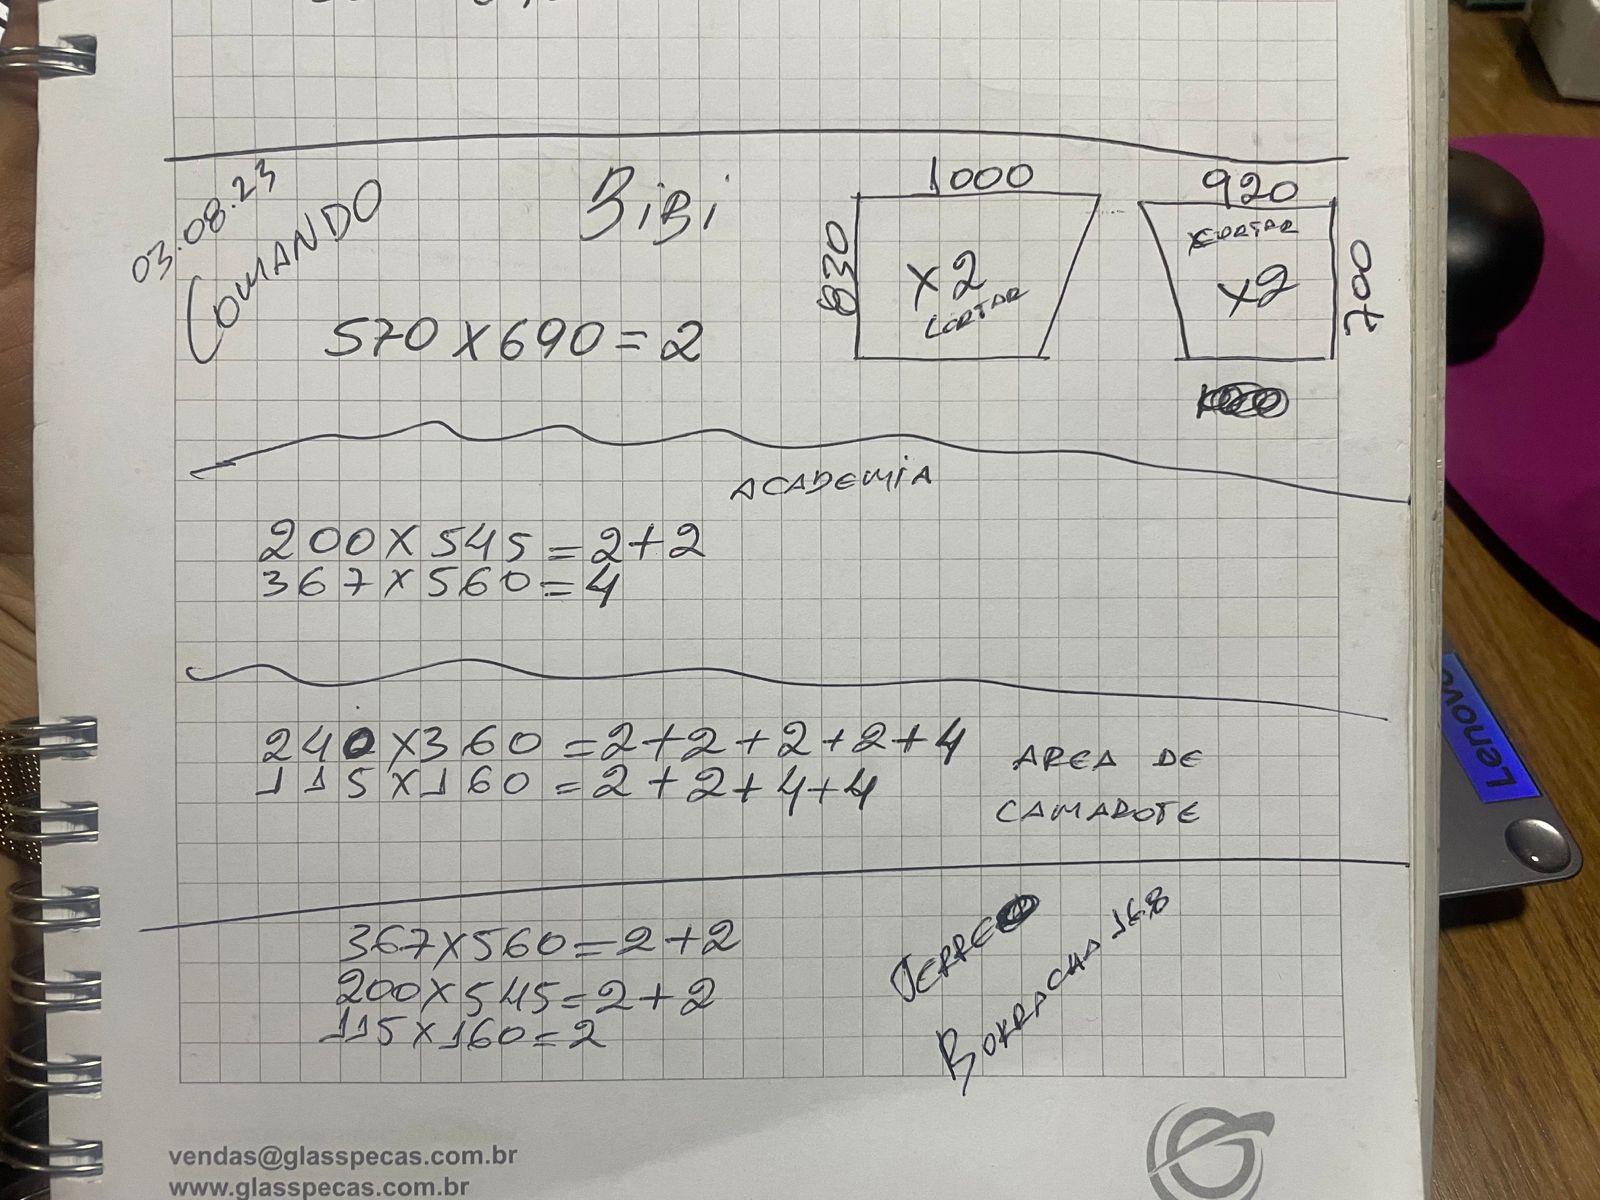 03.08.23
COMANDO
BiBi
570 X 690 = 2
1000
830
X 2
CORTAR
920
CORTAR
X2
700
ACADEMIA
200 X 545 = 2+2
367 X 560 = 4
240 X 360 = 2+2+2+2+4
115 X 160 = 2+2+4+4
AREA DE
CAMAROTE
367 X 560 = 2+2
200 X 545 = 2+2
115 X 160 = 2
BORRACHA 168
vendas@glasspecas.com.br
www.glasspecas.com.br
Lenovo